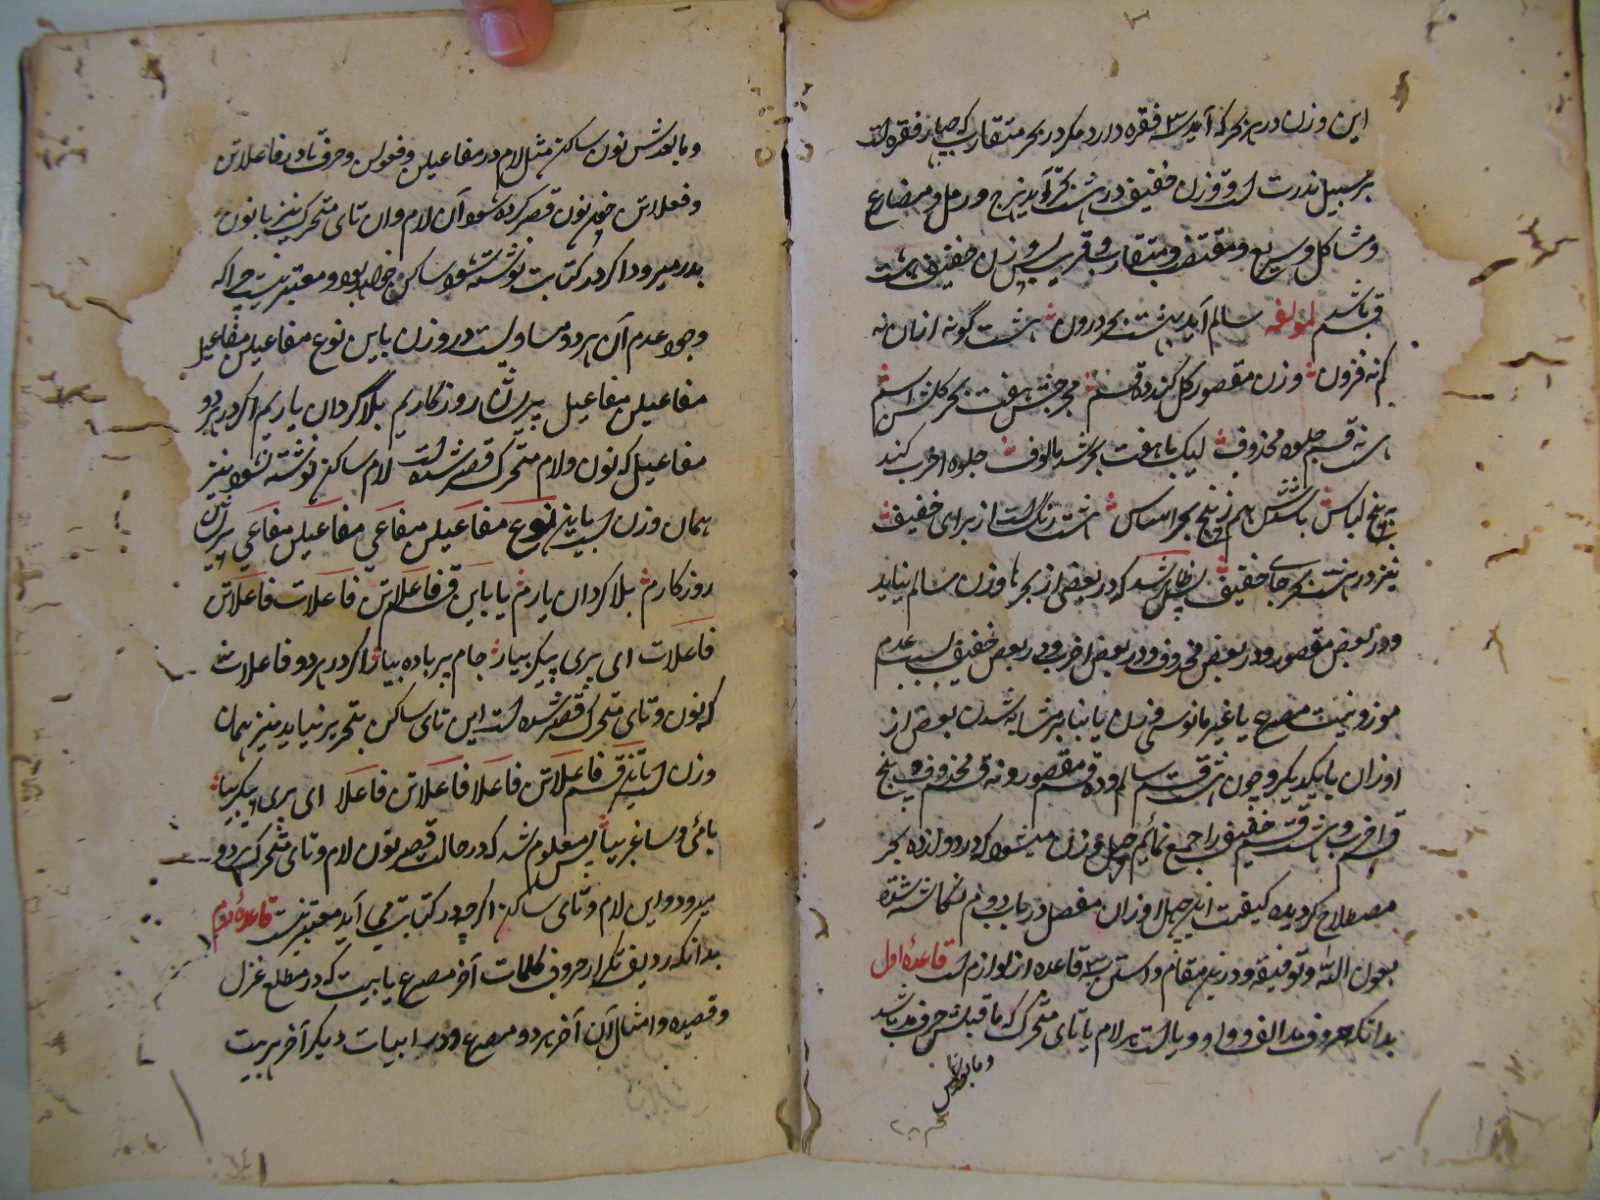 این وزن در هر بحر که آید سه فقره دارد مگر در بحر متقارب که چهار فقره است
بر سبیل ندرت است و وزن خفیف در هشت بحر آید هزج و رمل و مضارع
و مشاکل و سریع و مقتضب و متقارب و قریب پس وزن خفیف هشت
قسم باشد لمولفه سالم آید بهشت بحر درون هشت گونه ازان نه
کم نه فزون وزن مقصور گل کند ده قسم
نه قسم جلوه محذوف لیک با هفت بحر شد مالوف جلوه اخرب کند
به پنج لباس هم ز پنج بحر اساس هشت رنگ است از برای خفیف
نیز در هشت بحر جای خفیف که در بعض از بحرها وزن سالم نیاید
و در بعض مقصور و در بعض محذوف و در بعض اخرب و در بعض خفیف بسبب عدم
موزونیت مصرع یا غیر مانوسی وزن یا بنابر مشابه شدن بعض از
اوزان با یکدیگر و چون هشت قسم سالم و ده قسم مقصور و نه قسم محذوف و پنج
قسم اخرب و هشت قسم خفیف را جمع نمائیم چهل وزن میشود که در دوازده بحر
مصطلح گردیده کیفیت این چهل اوزان مفصل در باب دوم نگاشته شده
بعون الله و توفیقه و درین مقام دانستن سه قاعده از لوازم است قاعدهٔ اول
بدانکه حروف مد الف و واو و یا است هر لام یا تای متحرک که ما قبلش حرف مد باشد
و ما بعدش
و ما بعدش نون ساکن مثل لام در مفاعیلن و فعولن و حرف تا در فاعلاتن
و فعلاتن چون نون قصر کرده شود آن لام و ان تای متحرک نیز با نون
بدر میرود اگر در کتابت نوشته شود ساکن خواهد بود و معتبر نیست چرا که
وجود عدم آن هر دو مساویست در وزن باین نوع مفاعیلن مفاعیل
مفاعیلن مفاعیل پریشان روزگاریم بلاگردان یاریم اگر در هر دو
مفاعیل که نون و لام متحرک قصر شده است لام ساکن نوشته نشود نیز
همان وزن است باین نوع مفاعیلن مفاعی مفاعیلن مفاعی پریشان
روزگارم بلا گردان یارم یا باین قسم فاعلاتن فاعلات فاعلاتن
فاعلات ای پری پیکر بیار جام پر باده بیار اگر در هر دو فاعلات
که نون و تای متحرک قصر شده است این تای ساکن بتحریر نیاید نیز همان
وزن است باین قسم فاعلاتن فاعلا فاعلاتن فاعلا ای پری پیکر بیا
بامی و ساغر بیا پس معلوم شد که در حالت قصر نون لام و تای متحرک هر دو
میرود و این لام و تای ساکن اگرچه در کتابت می آید معتبر نیست قاعدهٔ دوم
بدانکه ردیف تکرار حروف کلمات آخر مصرع یا بیت که در مطلع غزل
و قصیده و امثال آن آخر هر دو مصرع و در ابیات دیگر آخر هر بیت